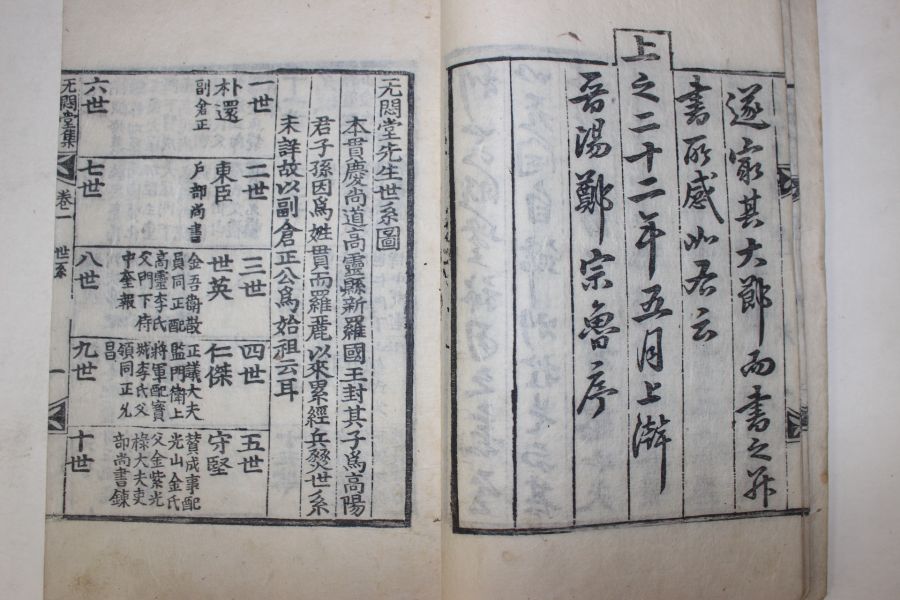 遂衮其大郞而書之幷
書所感如右云
上之二十二年五月上澣
晉陽鄭宗魯序
无悶堂先生世系圖
本貫慶尙道高靈縣新羅國王封其子爲高陽
君子孫因爲姓貫而羅麗以來累經兵燹世系
未詳故以副倉正公爲始祖云耳
一世
朴還
副倉正
二世
東臣
戶部尙書
三世
世英
金吾衛散
員同正配
高靈李氏
父門下侍
中奎報
四世
仁傑
正議大夫
監門衛上
將軍配寶
城李氏父
領同正允
昌
五世
守堅
贊成事配
光山金氏
父金紫光
祿大夫吏
部尙書鍊
六世
七世
八世
九世
十世
无悶堂集
卷一
世系
一